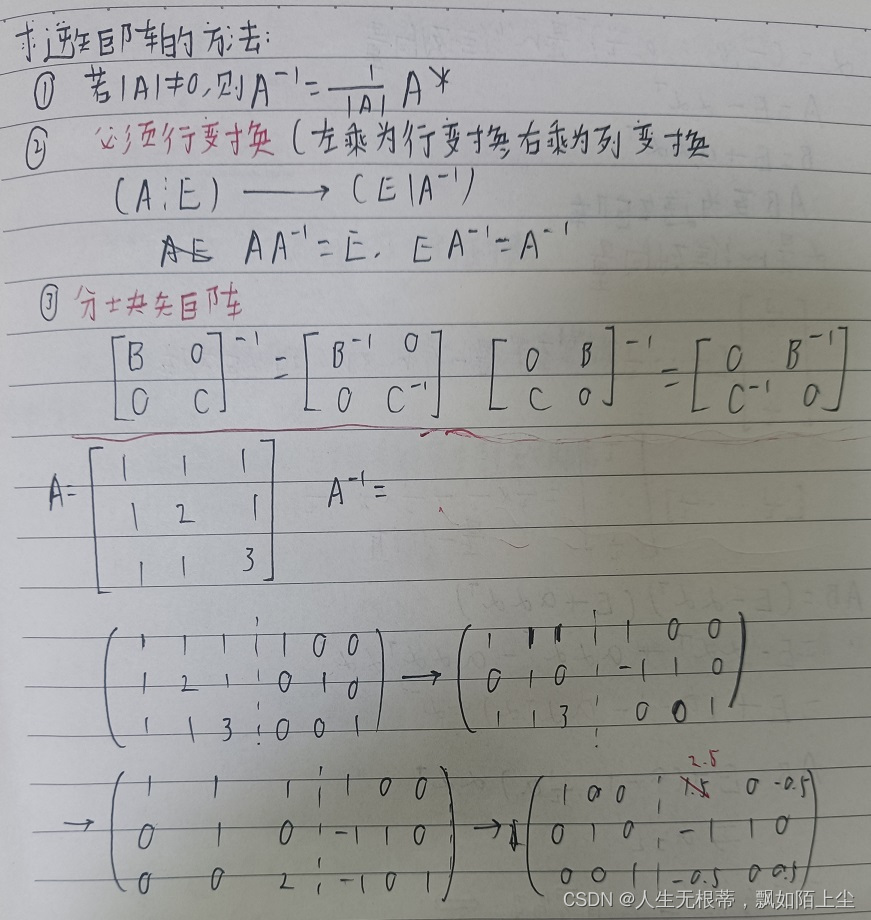 求逆矩阵的方法:
① 若|A|≠0,则A⁻¹=1/|A| A*
② 必须行变换(左乘为行变换,右乘为列变换
(A⋮E) ⟶ (E|A⁻¹)
AE AA⁻¹=E. EA⁻¹=A⁻¹
③ 分块矩阵
[B O; O C]⁻¹ = [B⁻¹ O; O C⁻¹] [O B; C O]⁻¹ = [O B⁻¹; C⁻¹ O]
A= [1 1 1; 1 2 1; 1 1 3] A⁻¹=
(1 1 1 ⋮ 1 0 0; 1 2 1 ⋮ 0 1 0; 1 1 3 ⋮ 0 0 1) → (1 1 1 ⋮ 1 0 0; 0 1 0 ⋮ -1 1 0; 1 1 3 ⋮ 0 0 1)
→ (1 1 1 ⋮ 1 0 0; 0 1 0 ⋮ -1 1 0; 0 0 2 ⋮ -1 0 1) → (1 0 0 ⋮ 2.5 1.5 0 -0.5; 0 1 0 ⋮ -1 1 0; 0 0 1 | -0.5 0 0.5)
CSDN @人生无根蒂,飘如陌上尘